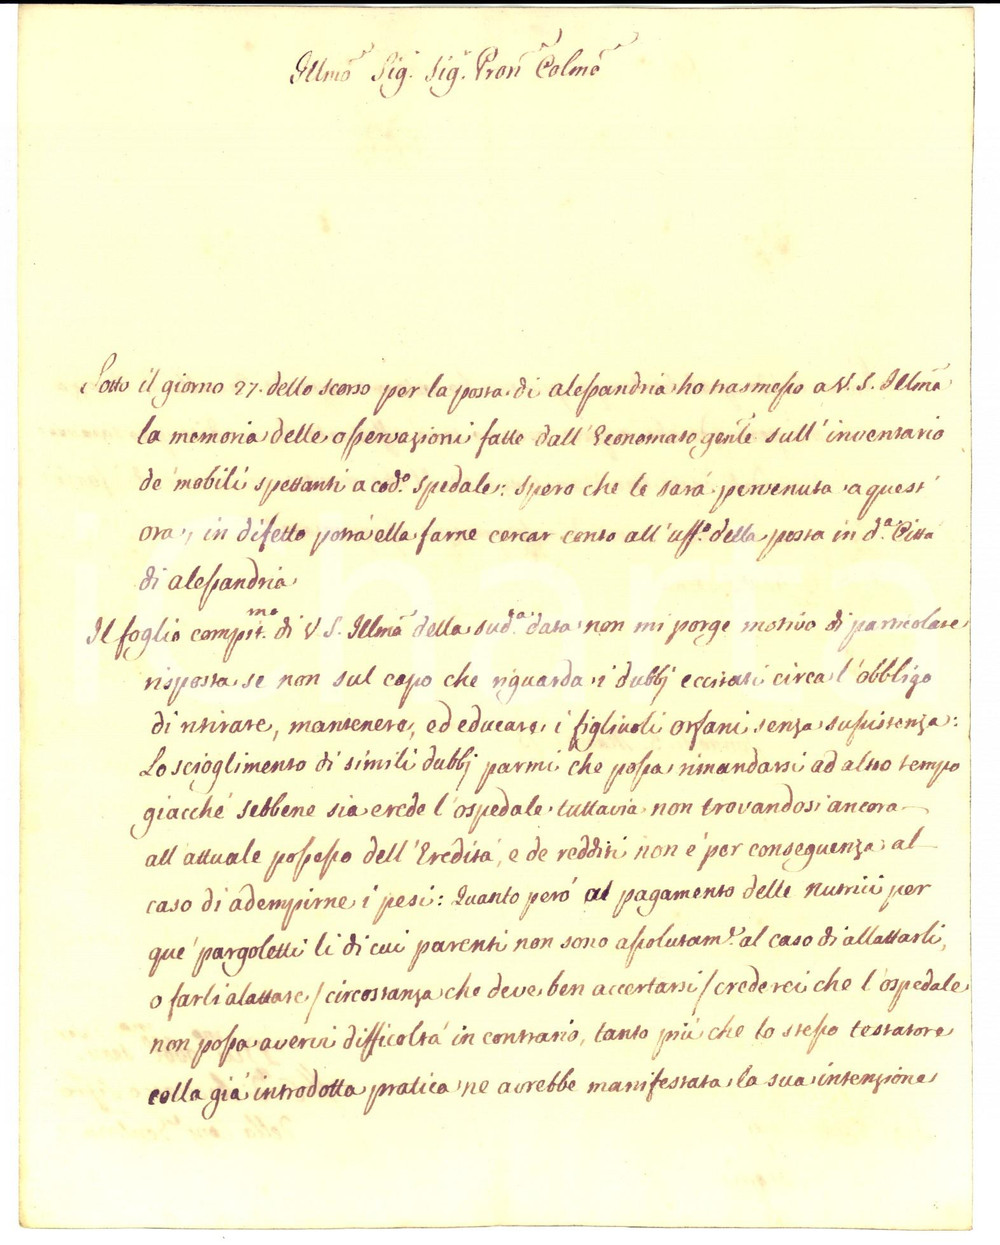 Illmo Sig. Sig. Pron Colmo
Sotto il giorno 27. dello scorso per la posta di alessandria ho trasmesso a V. S. Illma
la memoria delle osservazioni fatte dall' Economato gen.le sull' inventario
de' mobili spettanti a cod.o spedale: spero che le sarà pervenuta a quest'
ora, in difetto potrà ella farne cercar conto all' uff.o della posta in d.a Città
di alessandria
Il foglio compit.mo di V S. Illma della sud.a data non mi porge motivo di particolare
risposta se non sul capo che riguarda i dubbj eccitati circa l' obbligo
di ritirare, mantenere, ed educare i figliuoli orfani senza sussistenza:
Lo scioglimento di simili dubbj parmi che possa rimandarsi ad altro tempo
giacché sebbene sia erede l' ospedale tuttavia non trovandosi ancora
all' attuale possesso dell' Eredità, e de redditi non è per conseguenza al
caso di adempirne i pesi: Quanto però al pagamento delle nutrici per
que' pargoletti li di cui parenti non sono assolutam.e al caso di allattarli,
o farli alattare / circostanza che deve ben accertarsi / crederei che l' ospedale
non possa avervi difficoltà in contrario, tanto più che lo stesso testatore
colla già introdotta pratica ne avrebbe manifestata la sua intenzione